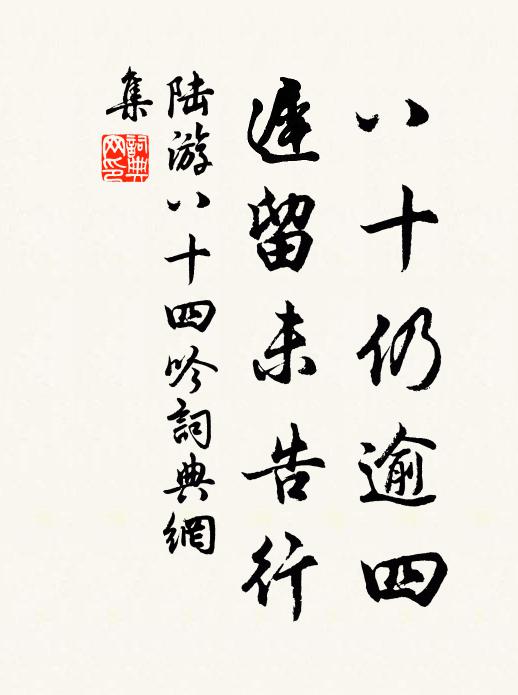 八十仍逾四
遲留未告行
陸游八十四吟詞典網
集
詞典
网印